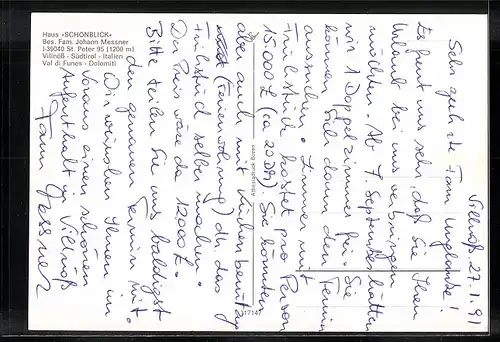 Haus «SCHÖNBLICK»
Bes. Fam. Johann Messner
I-39040 St. Peter 95 (1200 m)
Villnöß - Südtirol - Italien
Val di Funes - Dolomiti
Villnöß, 27.1.91
Sehr geehrte Fam Unglaube!
Es freut uns sehr, daß Sie Ihren
Urlaub bei uns verbringen
möchten. Ab 7 September hätten
wir 1 Doppelzimmer frei. Sie
können sich dann den Termin
aussuchen. Zimmer mit
Frühstück kostet pro Person
15000 £ (ca 20 DM) Sie könnten
aber auch mit Küchenbenützg
(Ferienwohnung) dh das
Frühstück selber machen.
Der Preis wäre da 12000 £.
Bitte teilen Sie uns baldigst
den genauen Termin mit.
Wir wünschen Ihnen im
voraus einen schönen
Aufenthalt in Villnöß
Fam Messner
17147